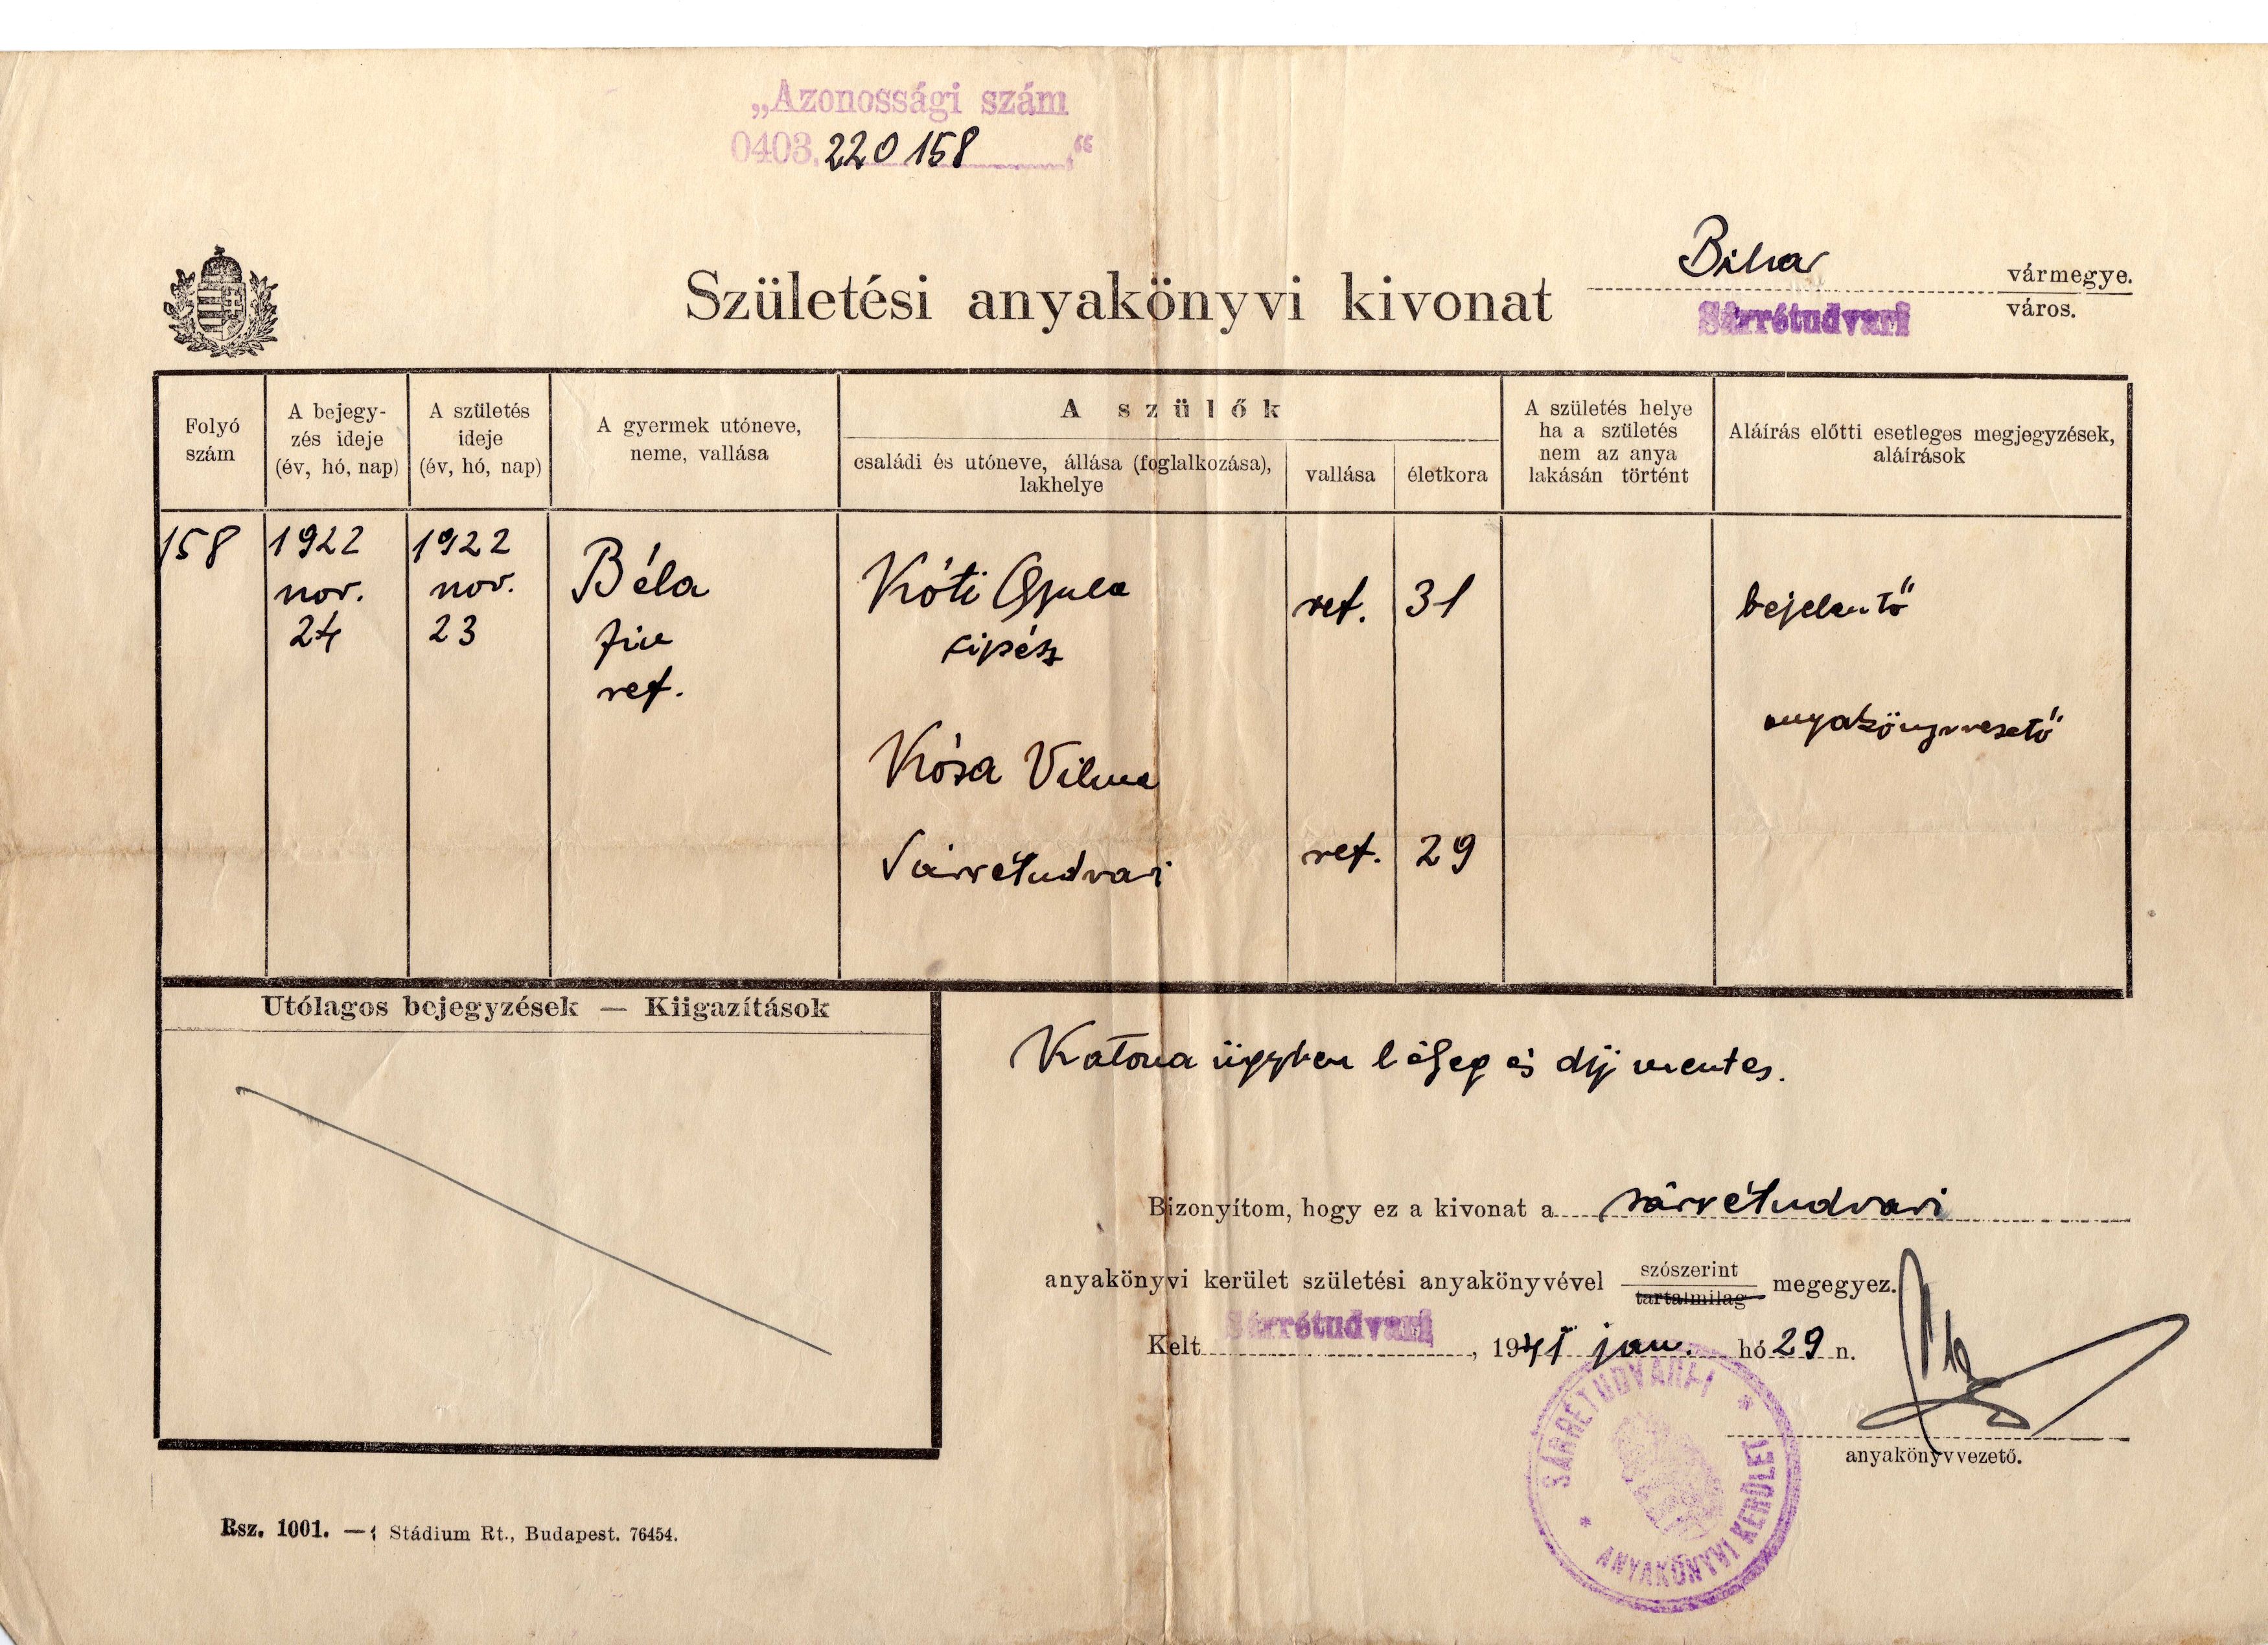 „Azonossági szám
0403. 220158 “
Bihar vármegye.
Születési anyakönyvi kivonat
Sárrétudvari város.
Folyó
szám
A bejegy-
zés ideje
(év, hó, nap)
A születés
ideje
(év, hó, nap)
A gyermek utóneve,
neme, vallása
A szülők
családi és utóneve, állása (foglalkozása),
lakhelye
vallása
életkora
A születés helye
ha a születés
nem az anya
lakásán történt
Aláírás előtti esetleges megjegyzések,
aláírások
158
1922
nov.
24
1922
nov.
23
Béla
fiu
ref.
Kóti Gyula
cipész
ref.
31
bejelentő
anyakönyvvezető
Kósa Vilma
Sárrétudvari
ref.
29
Utólagos bejegyzések — Kiigazítások
Katona ügyben bélyeg és díj mentes.
Bizonyítom, hogy ez a kivonat a sárrétudvari
anyakönyvi kerület születési anyakönyvével szószerint megegyez.
tartalmilag
Kelt Sárrétudvari, 1941 jan. hó 29 n.
anyakönyvvezető.
SÁRRÉTUDVARI
* ANYAKÖNYVI KERÜLET *
Rsz. 1001. — Stádium Rt., Budapest. 76454.